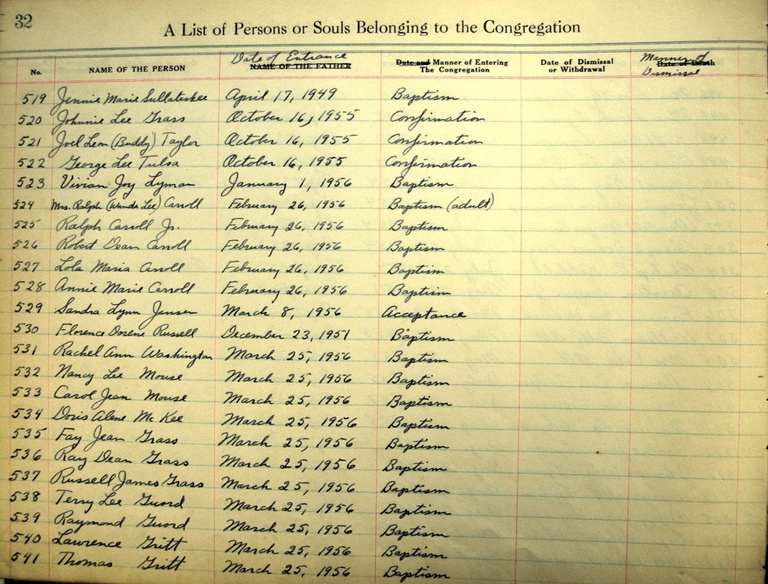 32
A List of Persons or Souls Belonging to the Congregation
No. NAME OF THE PERSON Date of Entrance NAME OF THE FATHER Date and Manner of Entering The Congregation Date of Dismissal or Withdrawal Manner of Dismissal Date of Death
519 Jennie Marie Sullateskee April 17, 1949 Baptism
520 Johnnie Lee Grass October 16, 1955 Confirmation
521 Joel Leon (Buddy) Taylor October 16, 1955 Confirmation
522 George Lee Tulsa October 16, 1955 Confirmation
523 Vivian Joy Lyman January 1, 1956 Baptism
524 Mrs. Ralph (Wanda Lee) Carroll February 26, 1956 Baptism (adult)
525 Ralph Carroll Jr. February 26, 1956 Baptism
526 Robert Dean Carroll February 26, 1956 Baptism
527 Lola Maria Carroll February 26, 1956 Baptism
528 Annie Marie Carroll February 26, 1956 Baptism
529 Sandra Lynn Jensen March 8, 1956 Acceptance
530 Florence Dorene Russell December 23, 1951 Baptism
531 Rachel Ann Washington March 25, 1956 Baptism
532 Nancy Lee Mouse March 25, 1956 Baptism
533 Carol Jean Mouse March 25, 1956 Baptism
534 Doris Alene McKee March 25, 1956 Baptism
535 Fay Jean Grass March 25, 1956 Baptism
536 Ray Dean Grass March 25, 1956 Baptism
537 Russell James Grass March 25, 1956 Baptism
538 Terry Lee Guord March 25, 1956 Baptism
539 Raymond Guord March 25, 1956 Baptism
540 Lawrence Gritt March 25, 1956 Baptism
541 Thomas Gritt March 25, 1956 Baptism